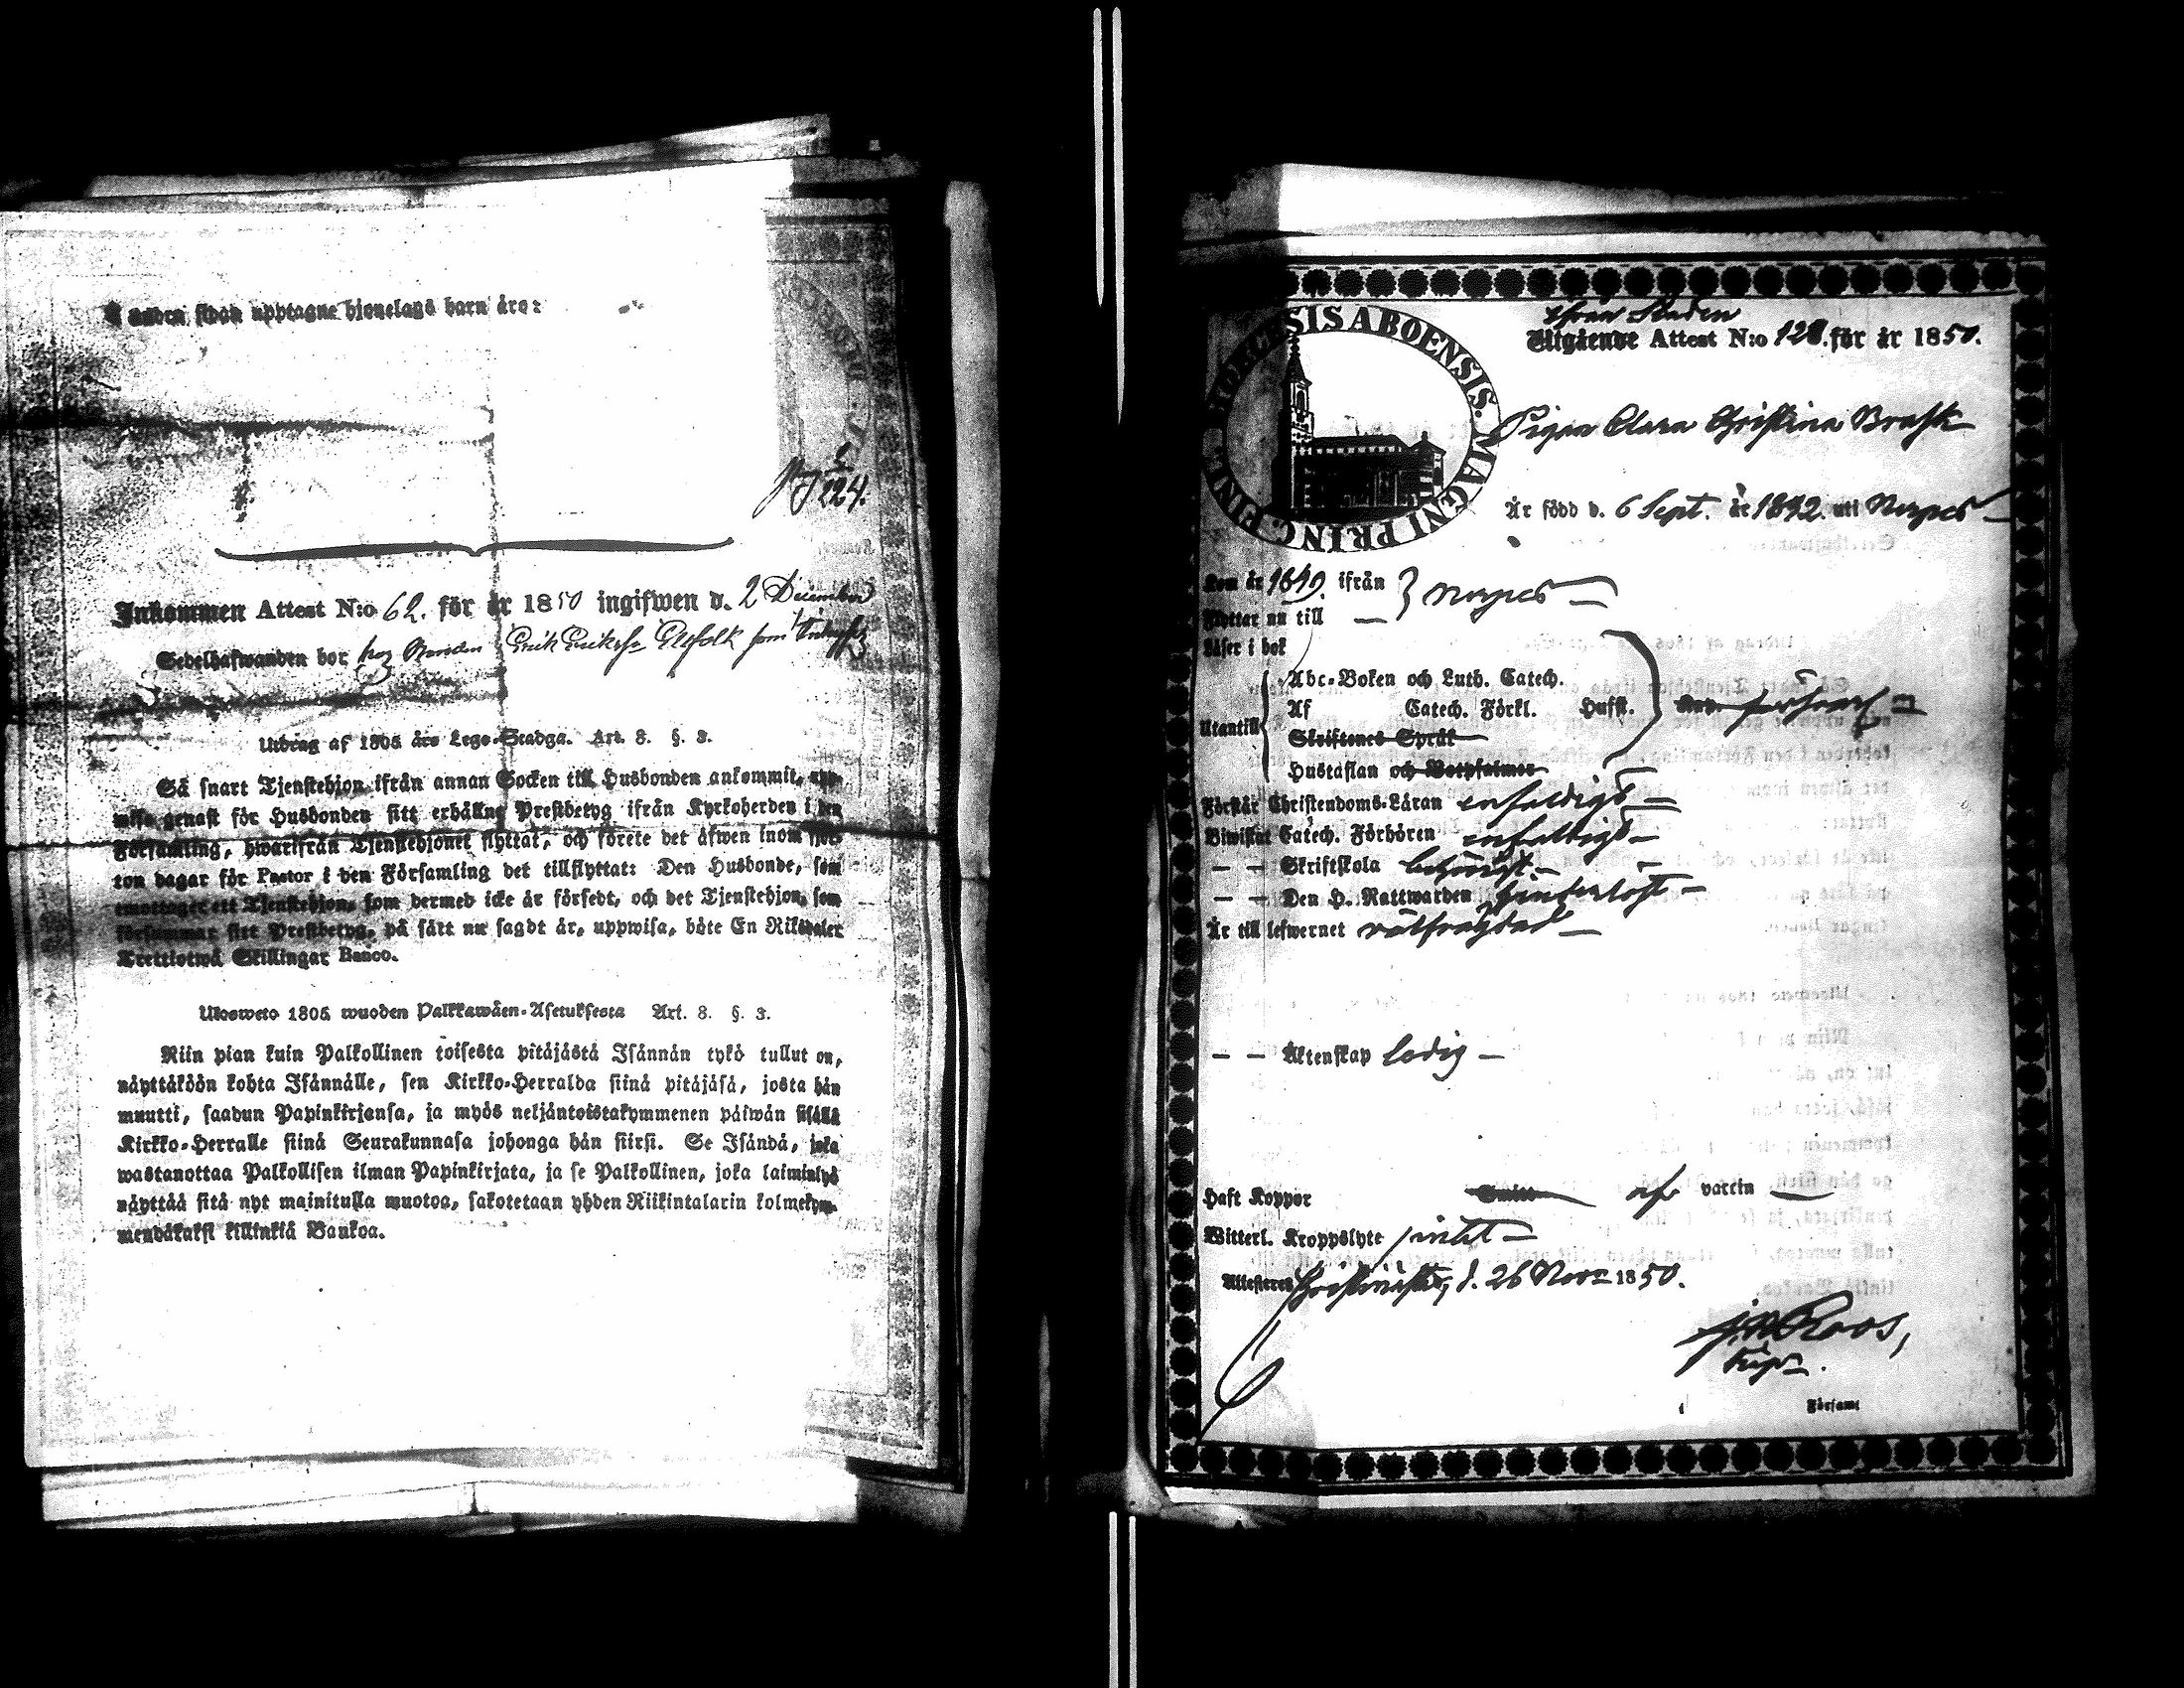 upptagne hjonelags barn äro:
224.
Inkommen Attest N:o 62. för år 1850 ingifwen d. 2 December
Sedelhafwanden bor hos Bonden Erik Eriksson som
Utdrag af 1805 års Lego-Stadga. Art. 8. §. 3.
Så snart Tjenstehjon ifrån annan Socken till Husbonden ankommit, upp-
wise genast för Husbonden sitt erhållne Prestbetyg ifrån Kyrkoherden i den
Församling, hwarifrån Tjenstehjonet flyttat, och förete det äfwen inom fjor-
ton dagar för Pastor i den Församling det tillflyttat: Den Husbonde, som
emottager ett Tjenstehjon, som dermed icke är försedt, och det Tjenstehjon, som
försummar sitt Prestbetyg, på sätt nu sagdt är, uppwisa, böte En Riksdaler
Trettiotwå Skillingar Banco.
Ulosweto 1805 wuoden Palkkawäen-Asetuksesta Art. 8. §. 3.
Niin pian kuin Palkollinen toisesta pitäjästä Isännän tykö tullut on,
näyttäköön kohta Isännälle, sen Kirkko-Herralda siinä pitäjäsä, josta hän
muutti, saadun Papinkirjansa, ja myös neljäntoistakymmenen päiwän sisällä
Kirkko-Herralle siinä Seurakunnasa johonga hän siirsi. Se Isändä, joka
wastanottaa Palkollisen ilman Papinkirjata, ja se Palkollinen, joka laiminlyö
näyttää sitä nyt mainitulla muotoa, sakotetaan yhden Riikintalarin kolmekym-
mendäkaksi killinkiä Bankoa.
DIOECESIS ABOENSIS. MAGNI PRINC. FINL.
ifrån Staden
Utgående Attest N:o 128. för år 1850.
Pigan Clara Christina Brask
Är född d. 6 Sept. år 1832. uti Nerpes
Kom år 1849. ifrån } Nerpes
Flyttar nu till
Läser i bok
Abc-Boken och Luth. Catech.
Utantill Af Catech. Förkl. Hufst. försvarl.
Skriftenes Språk
Hustaflan och Botpsalmer
Förstår Christendoms-Läran enfaldigt
Biwistat Catech. Förhören enfaldigt
Skriftskola behörigt.
Den H. Nattwarden hinderlöst
Är till lefwernet välfrägdad
Äktenskap ledig
Haft Koppor Smitt af vaccin
Witterl. Kroppslyte intet
Attesteras Christinæstad, d. 26 Nov. 1850.
Roos,
i Församl